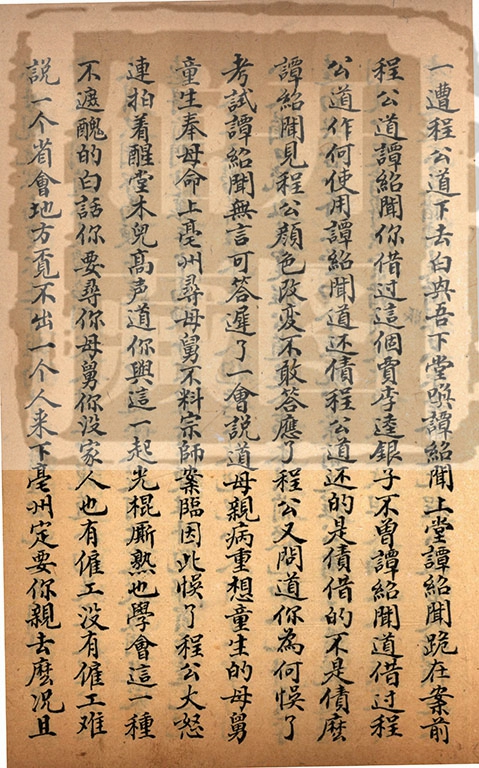 一遭程公道下去白與吾下堂喚譚紹聞上堂譚紹聞跪在案前
程公道譚紹聞你借過這個賣李逵銀子不曾譚紹聞道借過程
公道作何使用譚紹聞道还債程公道还的是債借的不是債麽
譚紹聞見程公顔色改变不敢答應了程公又問道你為何悞了
考試譚紹聞無言可答遲了一會説道母親病重想童生的母舅
童生奉母命上亳州尋母舅不料宗師案臨因此悞了程公大怒
連拍着醒堂木兒髙声道你與這一起光棍厮熟也學會這一種
不遮醜的白話你要尋你母舅你没家人也有僱工没有僱工难
説一个省會地方覔不出一个人来下亳州定要你親去麽况且